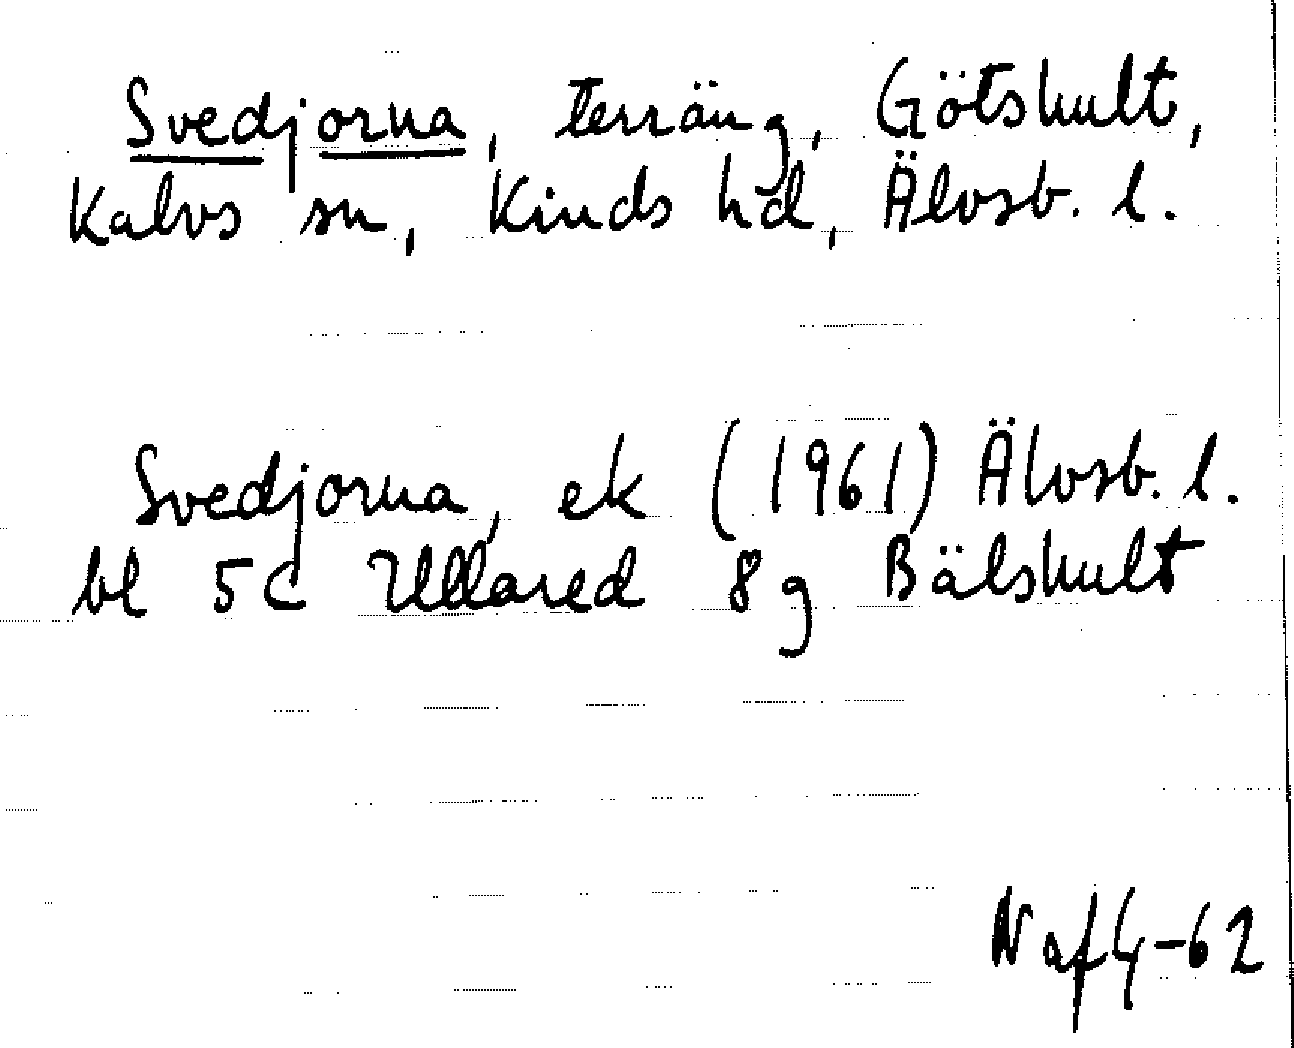 Svedjorna, terräng, Götshult,
Kalvs sn, Kinds hd, Älvsb. l.
Svedjorna, ek (1961) Älvsb. l.
bl 5C Ullared 8g Bälshult
N af G-62